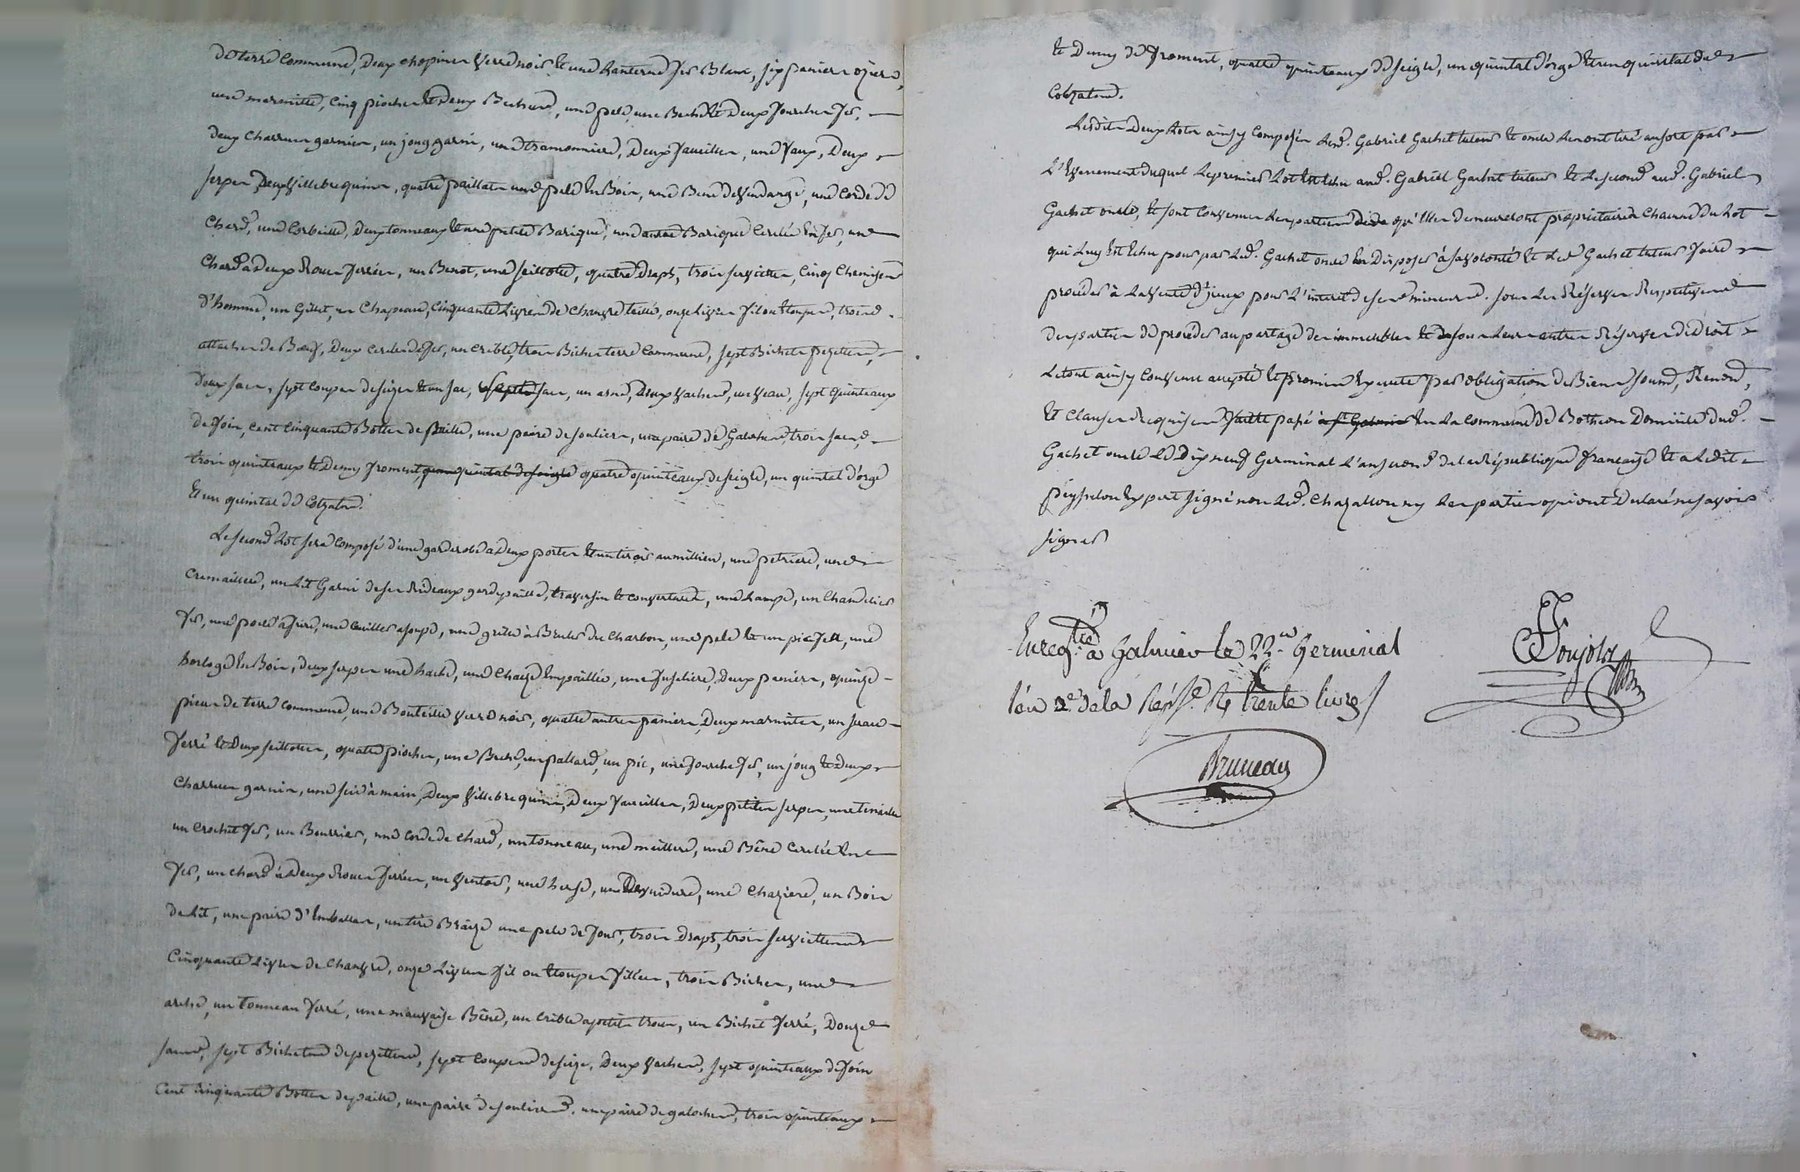 de terre commune, deux chopines verre noir et une Lanterne fer Blanc, six paniers ozier,
une marmitte, cinq pioches et deux Bechard, une pele, une Beche et deux fourches fer,
deux charrues garnies, un joug garni, une deux faucilles, une faux, Deux
serpes Deux Villebrequins, quatre paillats une pele En Bois, une Bene de Vendange, une Corde de
Chard, une Corbeille, deux tonneaux et une petite Barique, une autre Barique Cerclée En fer, un
Chard a Deux Roues ferrées, un Benot, une seillotte, quatre draps, trois serviettes, cinq Chemises
d'homme, un Gillet, un Chapeau, Cinquante Livres de Chanvre teillé, onze Livres fil ou Etoupes, trois
attaches de Bœuf, Deux cercles de fer, un crible, trois Biches terre Commune, sept Bichets pezettes,
Deux sacs, sept coupes de seize et un sac, un ane, Deux Vaches, un Veau, sept quinteaux
de foin, cent cinquante Bottes de paille, une paire de souliers, une paire de Galoches trois sacs,
trois quinteaux et Demy froment, quatre quinteaux de seigle, un quintal d'orge
Et un quintal de Colzats.
Le second Lot sera Composé d'une garderobe a Deux portes et un tiroir au millieu, une petriere, une
Cremaillere, un Lit Garni de ses Rideaux gardepaille, traversin et couverture, une Lampe, un Chandelier
fer, une poele a frire, une cuillier a soupe, une grille à Bruler du Charbon, une pele et un pic fer, une
horloge En Bois, deux serpes une hache, une Chaize Empaillée, une Deux paniers, quinze
pieces de terre commune, une Bouteille Verre noir, quatre autres paniers, Deux marmites, un seau
ferré et Deux seillottes, quatre pioches, une Beche, un pallard, un pic, une fourche fer, un joug et Deux
Charrues garnies, une scie à main, Deux Villebrequins, Deux faucilles, Deux petites serpes, une tenaille
un Crochet fer, un Bourrier, une Corde de Chard, un tonneau, une une Bêne Cerclée En
fer, un Chard à Deux Roues ferrées, un Ventoir, une herse, une une Chaziere, un Bois
de Lit, une paire d'Emballes, un tire Braize une pele de four, trois Draps, trois serviettes
Cinquante Livres de Chanvre, onze Livres fil ou Etoupes filées, trois Biches, une
arche, un tonneau ferré, une mauvaise Bêne, un Crible a petits trous, un Bichet ferré, Douze
sacs, sept Bichets de pezettes, sept coupes de seize, Deux Vaches, sept quinteaux de foin
Cent Cinquante Bottes de paille, une paire de souliers, une paire de galoches, trois quinteaux
et Demy de froment, quatre quinteaux de seigle, un quintal d'orge et un quintal de
Colzats.
Lesdits Deux Lots ainsy Composés Led. Gabriel Gachet tuteur et oncle Les ont tiré au sort par
L'Evenement duquel Le premier Lot est Echu aud. Gabriel Gachet tuteur et Le second aud. Gabriel
Gachet oncle, Et sont Convenues Les parties qu'Elles demeureront propriétaires Chacune du Lot
qui Luy est Echu pour par Led. Gachet oncle En Disposer à sa volonté et Led Gachet tuteur faire
proceder à La Vente d'iceux pour L'interet de ses mineurs. sous Les Réserves Respectives
des parties de proceder au partage des immeubles et sous Leurs autres Réserves de droit
Le tout ainsy Convenu accepté et promis Executer par obligation de Biens soumis, Renond,
et Clauses Requises fait et passé à st Galmier En La Commune de Botheon Domicile dud.
Gachet oncle Le Dix neuf Germinal L'an second de la République française Et a Ledit
peysselon Expert signé non Led. Chazallon ny Les parties qui ont Declaré ne savoir
signer
Enreg.tré à Galmier le 22e Germinal
l'an 2e de la Rép.e R trente livres
Bruneau